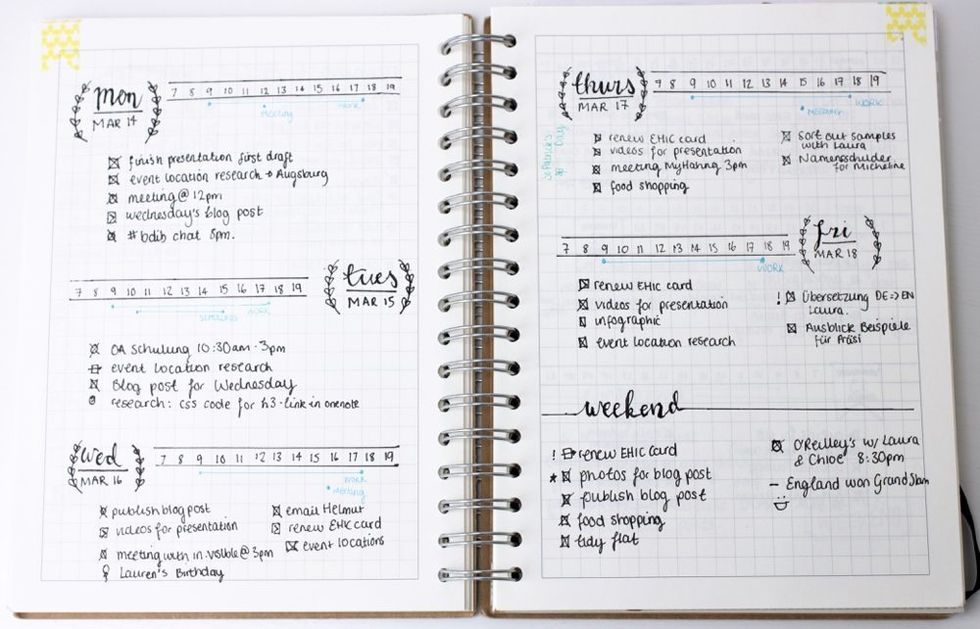 mon
MAR 14
7 8 9 10 11 12 13 14 15 16 17 18 19
meeting
WORK
finish presentation first draft
event location research → Augsburg
meeting @ 12pm
wednesday's blog post
#bdib chat 8pm.
7 8 9 10 11 12 13 14 15 16 17 18 19
SCHULUNG WORK
tues
MAR 15
OA Schulung 10:30am - 3pm
event location research
Blog post for Wednesday
research: css code for h3 - link in onenote
wed
MAR 16
7 8 9 10 11 12 13 14 15 16 17 18 19
WORK
meeting
publish blog post
videos for presentation
meeting with in.visible @ 3pm
Lauren's Birthday
email Helmut
renew EHIC card
event locations
thurs
MAR 17
7 8 9 10 11 12 13 14 15 16 17 18 19
WORK
MEETING
St Patrick's
Day
renew EHIC card
videos for presentation
meeting MyHammer 3pm
food shopping
Sort out samples
with Laura
Namensschilder
for Micheline
7 8 9 10 11 12 13 14 15 16 17 18 19
WORK
fri
MAR 18
renew EHIC card
videos for presentation
infographic
event location research
! Übersetzung DE => EN
Laura.
Ausblick Beispiele
für Präsi
weekend
! renew EHIC card
* photos for blog post
publish blog post
food shopping
tidy flat
O'Reilley's w/ Laura
& Chloe 8:30pm
– England won Grand Slam